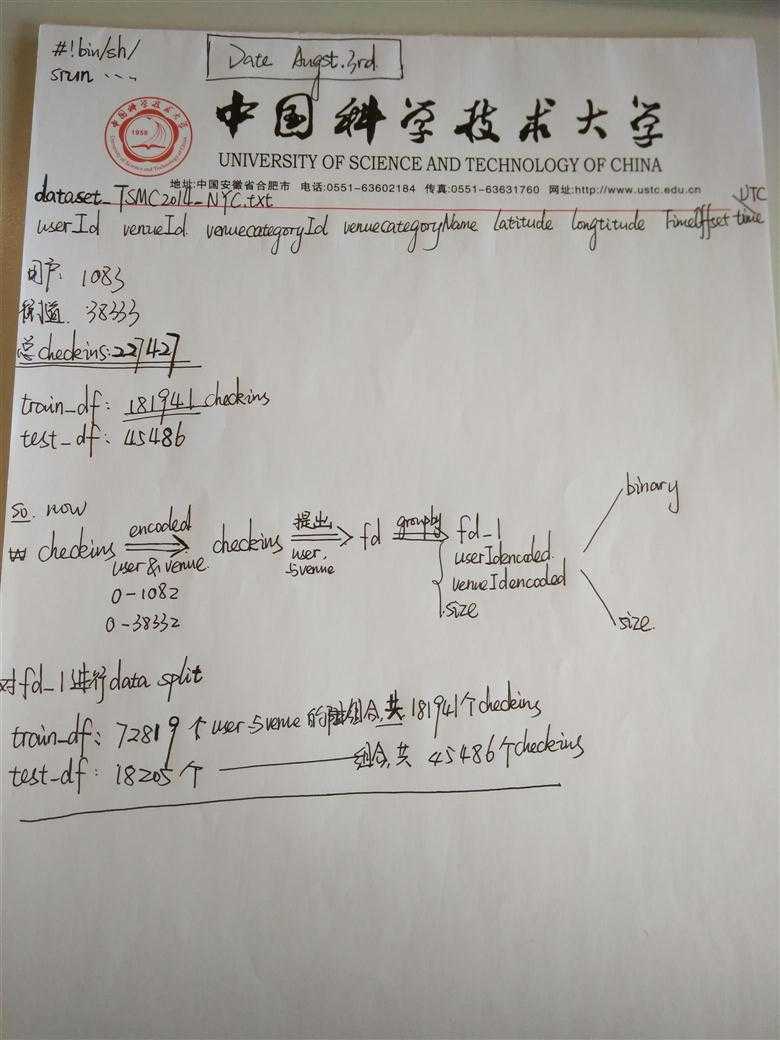 #!bin/sh/
srun ....
Date Augst.3rd.
中国科学技术大学
1958
UNIVERSITY OF SCIENCE AND TECHNOLOGY OF CHINA
地址:中国安徽省合肥市 电话:0551-63602184 传真:0551-63631760 网址:http://www.ustc.edu.cn
dataset_TSMC2014_NYC.txt
UTC
userId venueId venuecategoryId venuecategoryName Latitude Longtitude TimeOffset time
用户: 1083
: 38333
总checkins:227427
train_df: 181941 checkins
test_df: 45486
so. now
checkins encoded user&venue. 0-1082 0-38332
checkins 提出 user.与venue
fd groupby fd-1
userIdencoded.
venueIdencoded
size
binary
size.
对fd-1进行data split
train_df: 72819个user与venue的组合,共181941个checkins
test_df: 18205个 组合,共 45486个checkins